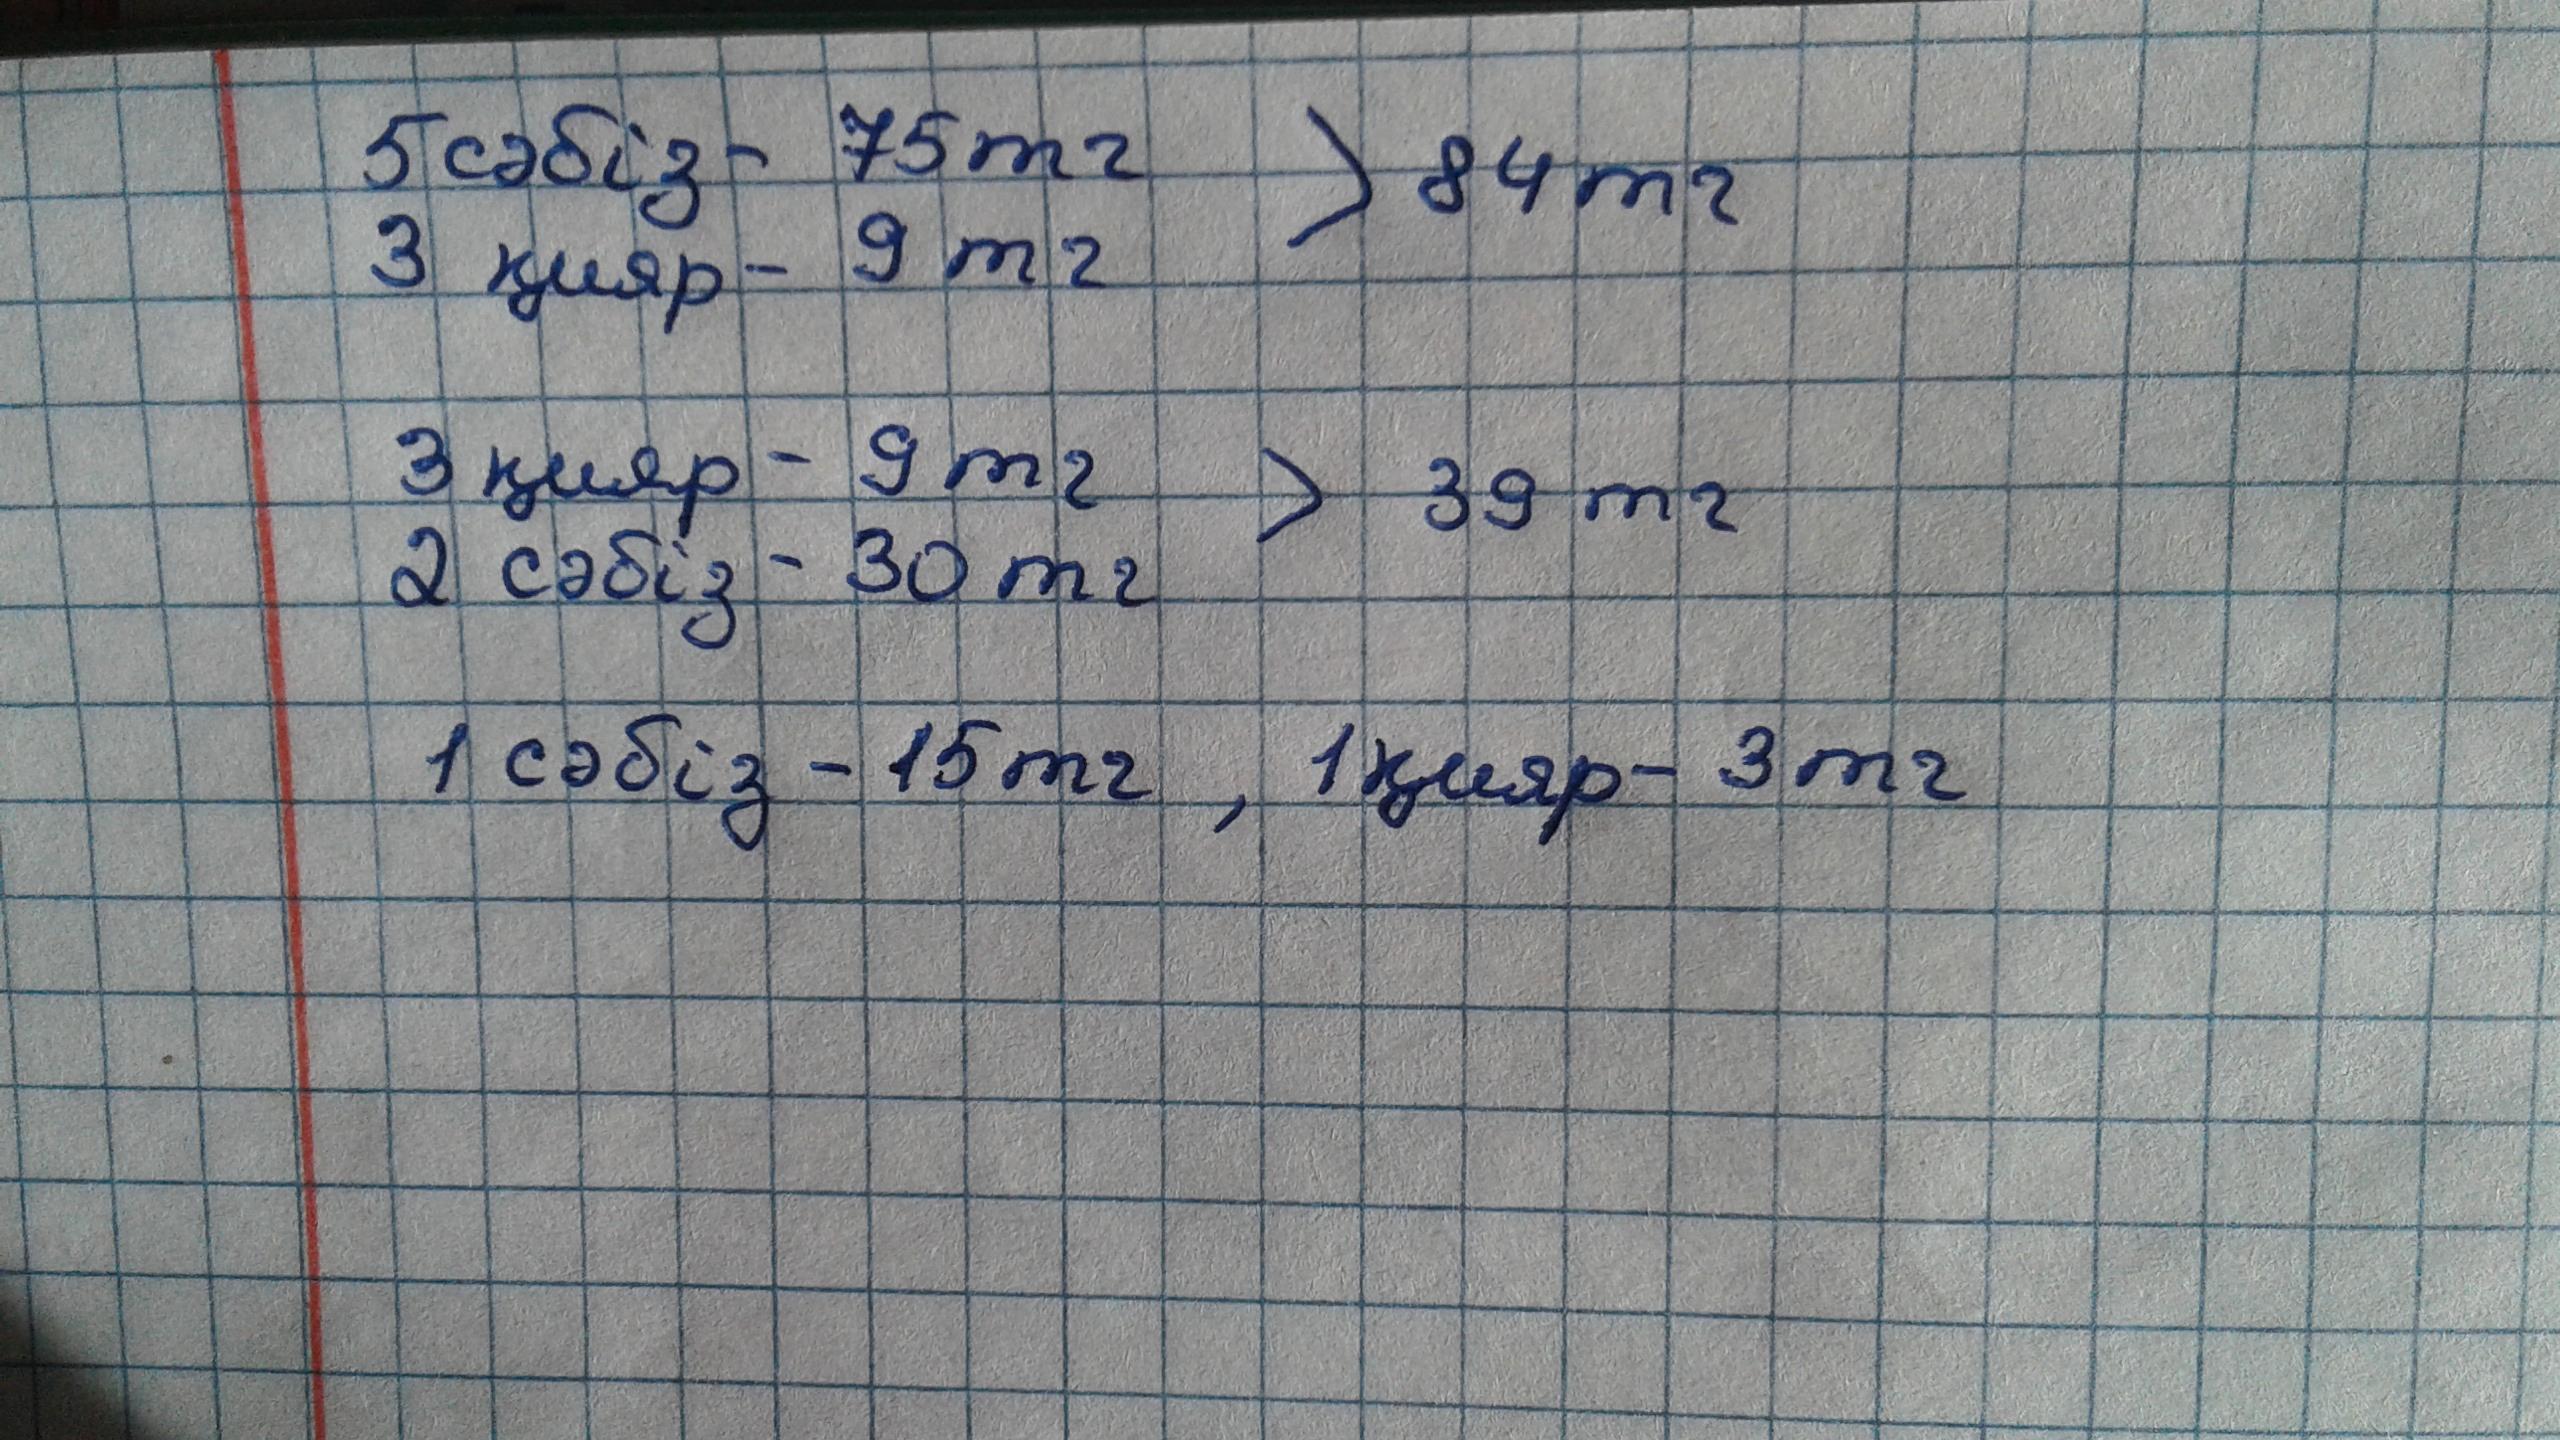 5 сәбіз - 75 тг > 84 тг
3 қияр - 9 тг
3 қияр - 9 тг > 39 тг
2 сәбіз - 30 тг
1 сәбіз - 15 тг , 1 қияр - 3 тг